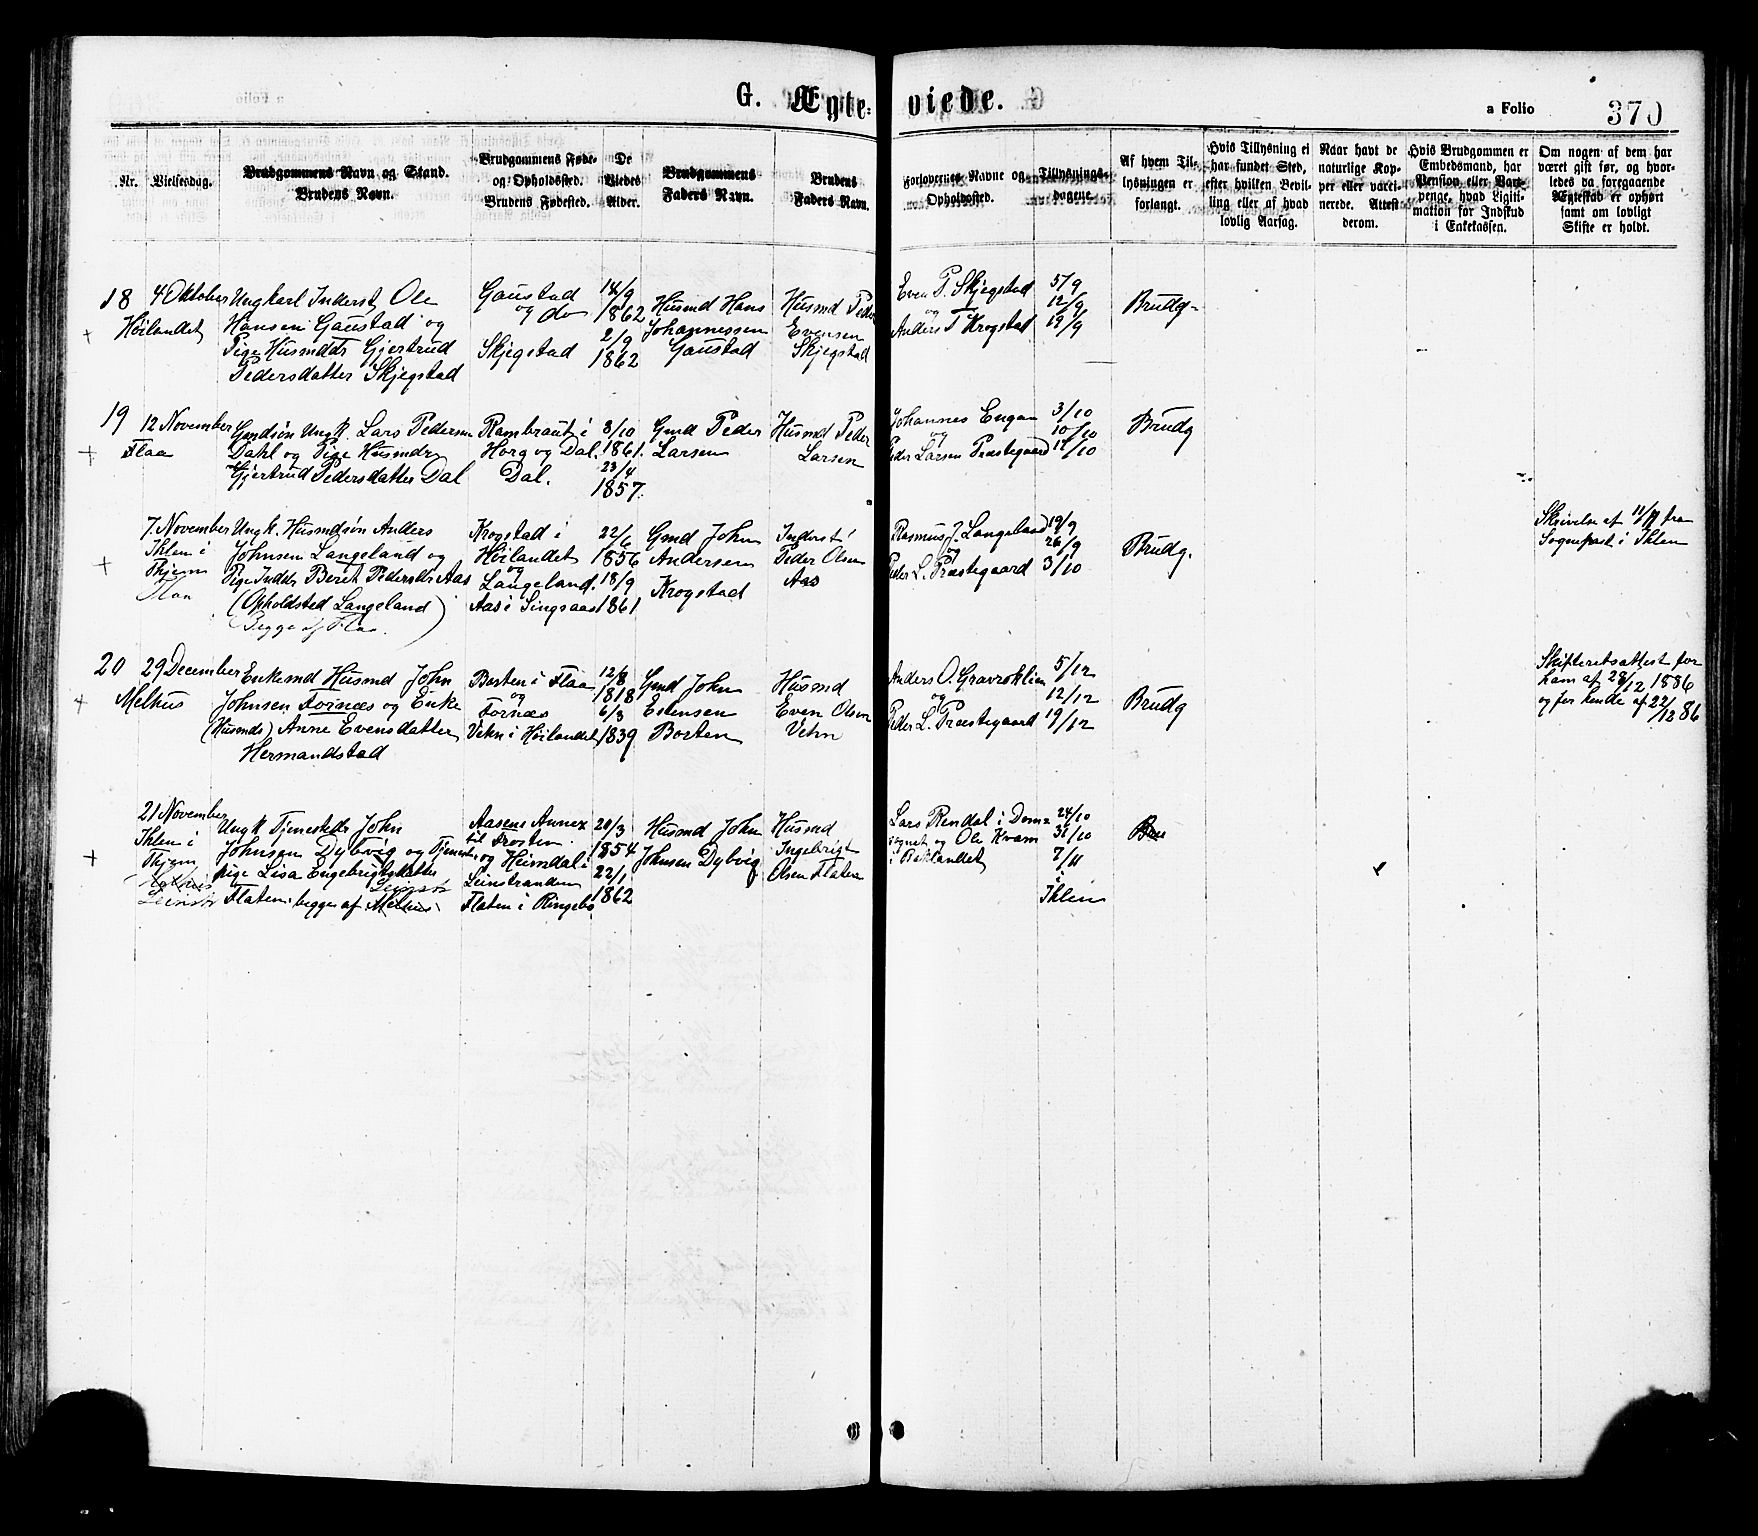 G. Ægte-viede.
a Folio 370
Nr.
Vielsesdag.
Brudgommens Navn og Stand.
Brudens Navn.
Brudgommens Føde-
og Opholdssted.
Brudens Fødested.
De
Viedes
Alder.
Brudgommens
Faders Navn.
Brudens
Faders Navn.
Forlovernes Navne og
Opholdssted.
Tillysnings-
dagene.
Af hvem Til-
lysningen er
forlangt.
Hvis Tillysning ei
har fundet Sted,
efter hvilken Bevil-
ling eller af hvad
lovlig Aarsag.
Naar havt de
naturlige Kop-
per eller vacci-
nerede. Attest
derom.
Hvis Brudgommen er
Embedsmand, har
Pension eller Vart-
penge, hvad Ligiti-
mation for Indskud
i Enkekassen.
Om nogen af dem har
været gift før, og hvor-
ledes da foregaaende
Ægteskab er ophørt
samt om lovligt
Skifte er holdt.
18
4 Oktober
Høilandet
Ungkarl Inderst, Ole
Hansen Gaustad og
Pige Husmdtr Gjertrud
Pedersdatter Skjegstad
Gaustad
og do
Skjegstad
14/9
1862
2/9
1862
Husmd Hans
Johannessen
Gaustad
Husmd Peder
Evensen
Skjegstad
Even P. Skjegstad
og
Anders T Krogstad
5/9
12/9
19/9
Brudg-
19
12 November
Flaa
Gmdsøn Ungk. Lars Pedersen
Dahl og Pige Husmdtr
Gjertrud Pedersdatter Dal
Rambraut i
Horg og Dal.
Dal.
8/10
1861.
23/4
1857.
Gmd Peder
Larsen
Husmd Peder
Larsen
Johannes Engan
og
Peder Larsen Præstegaard
3/10
10/10
17/10
Brudg
7. November
Ihlen i
Thjem
Flaa
Ungk. Husmdsøn Anders
Johnsen Langeland og
Pige Inddtr Beret Pedersdtr Aas
(Opholdsted Langeland)
Begge af Flaa.
Krogstad i
Høilandet
og
Langeland.
Aas i Singsaas
22/6
1856
18/9
1861
Gmd John
Andersen
Krogstad
Inderst
Peder Olsen
Aas
Rasmus J. Langeland
og
Peder L. Præstegaard
19/9
26/9
3/10
Brudg.
Skrivelse af 11/11 fra
Sognepræst i Ihlen
20
29 December
Melhus
Enkemd Husmd John
Johnsen Fornæs og Enke
(Husmds) Anne Evensdatter
Hermandstad
Borten i Flaa
og
Fornæs
Vehn i Høilandet
12/8
1818
6/3
1839
Gmd John
Estensen
Borten
Husmd
Even Olsen
Vehn
Anders O. Gravraklien
og
Peder L. Præstegaard
5/12
12/12
19/12
Brudg
Skifteretsattest for
ham af 28/12 1886
og for hende af 22/12 86
21 November
Ihlen i
Thjem
Melhus
Leinstr
Ungk Tjenestedr John
Johnsen Dybvig og Tjeneste-
pige Lisa Engebrigtsdatter
Flaten. begge af Melhus
Aasens Annex
til Frosten
og Heimdal i
Leinstranden
Flaten i Ringebo
20/3
1854
22/1
1862
Husmd John
Johnsen Dybvig
Husmd
Ingebrigt
Olsen Flaten
Lars Rendal i Dom-
og Ole Kvam
i Baklandet
24/10
31/10
7/11
i
Ihlen